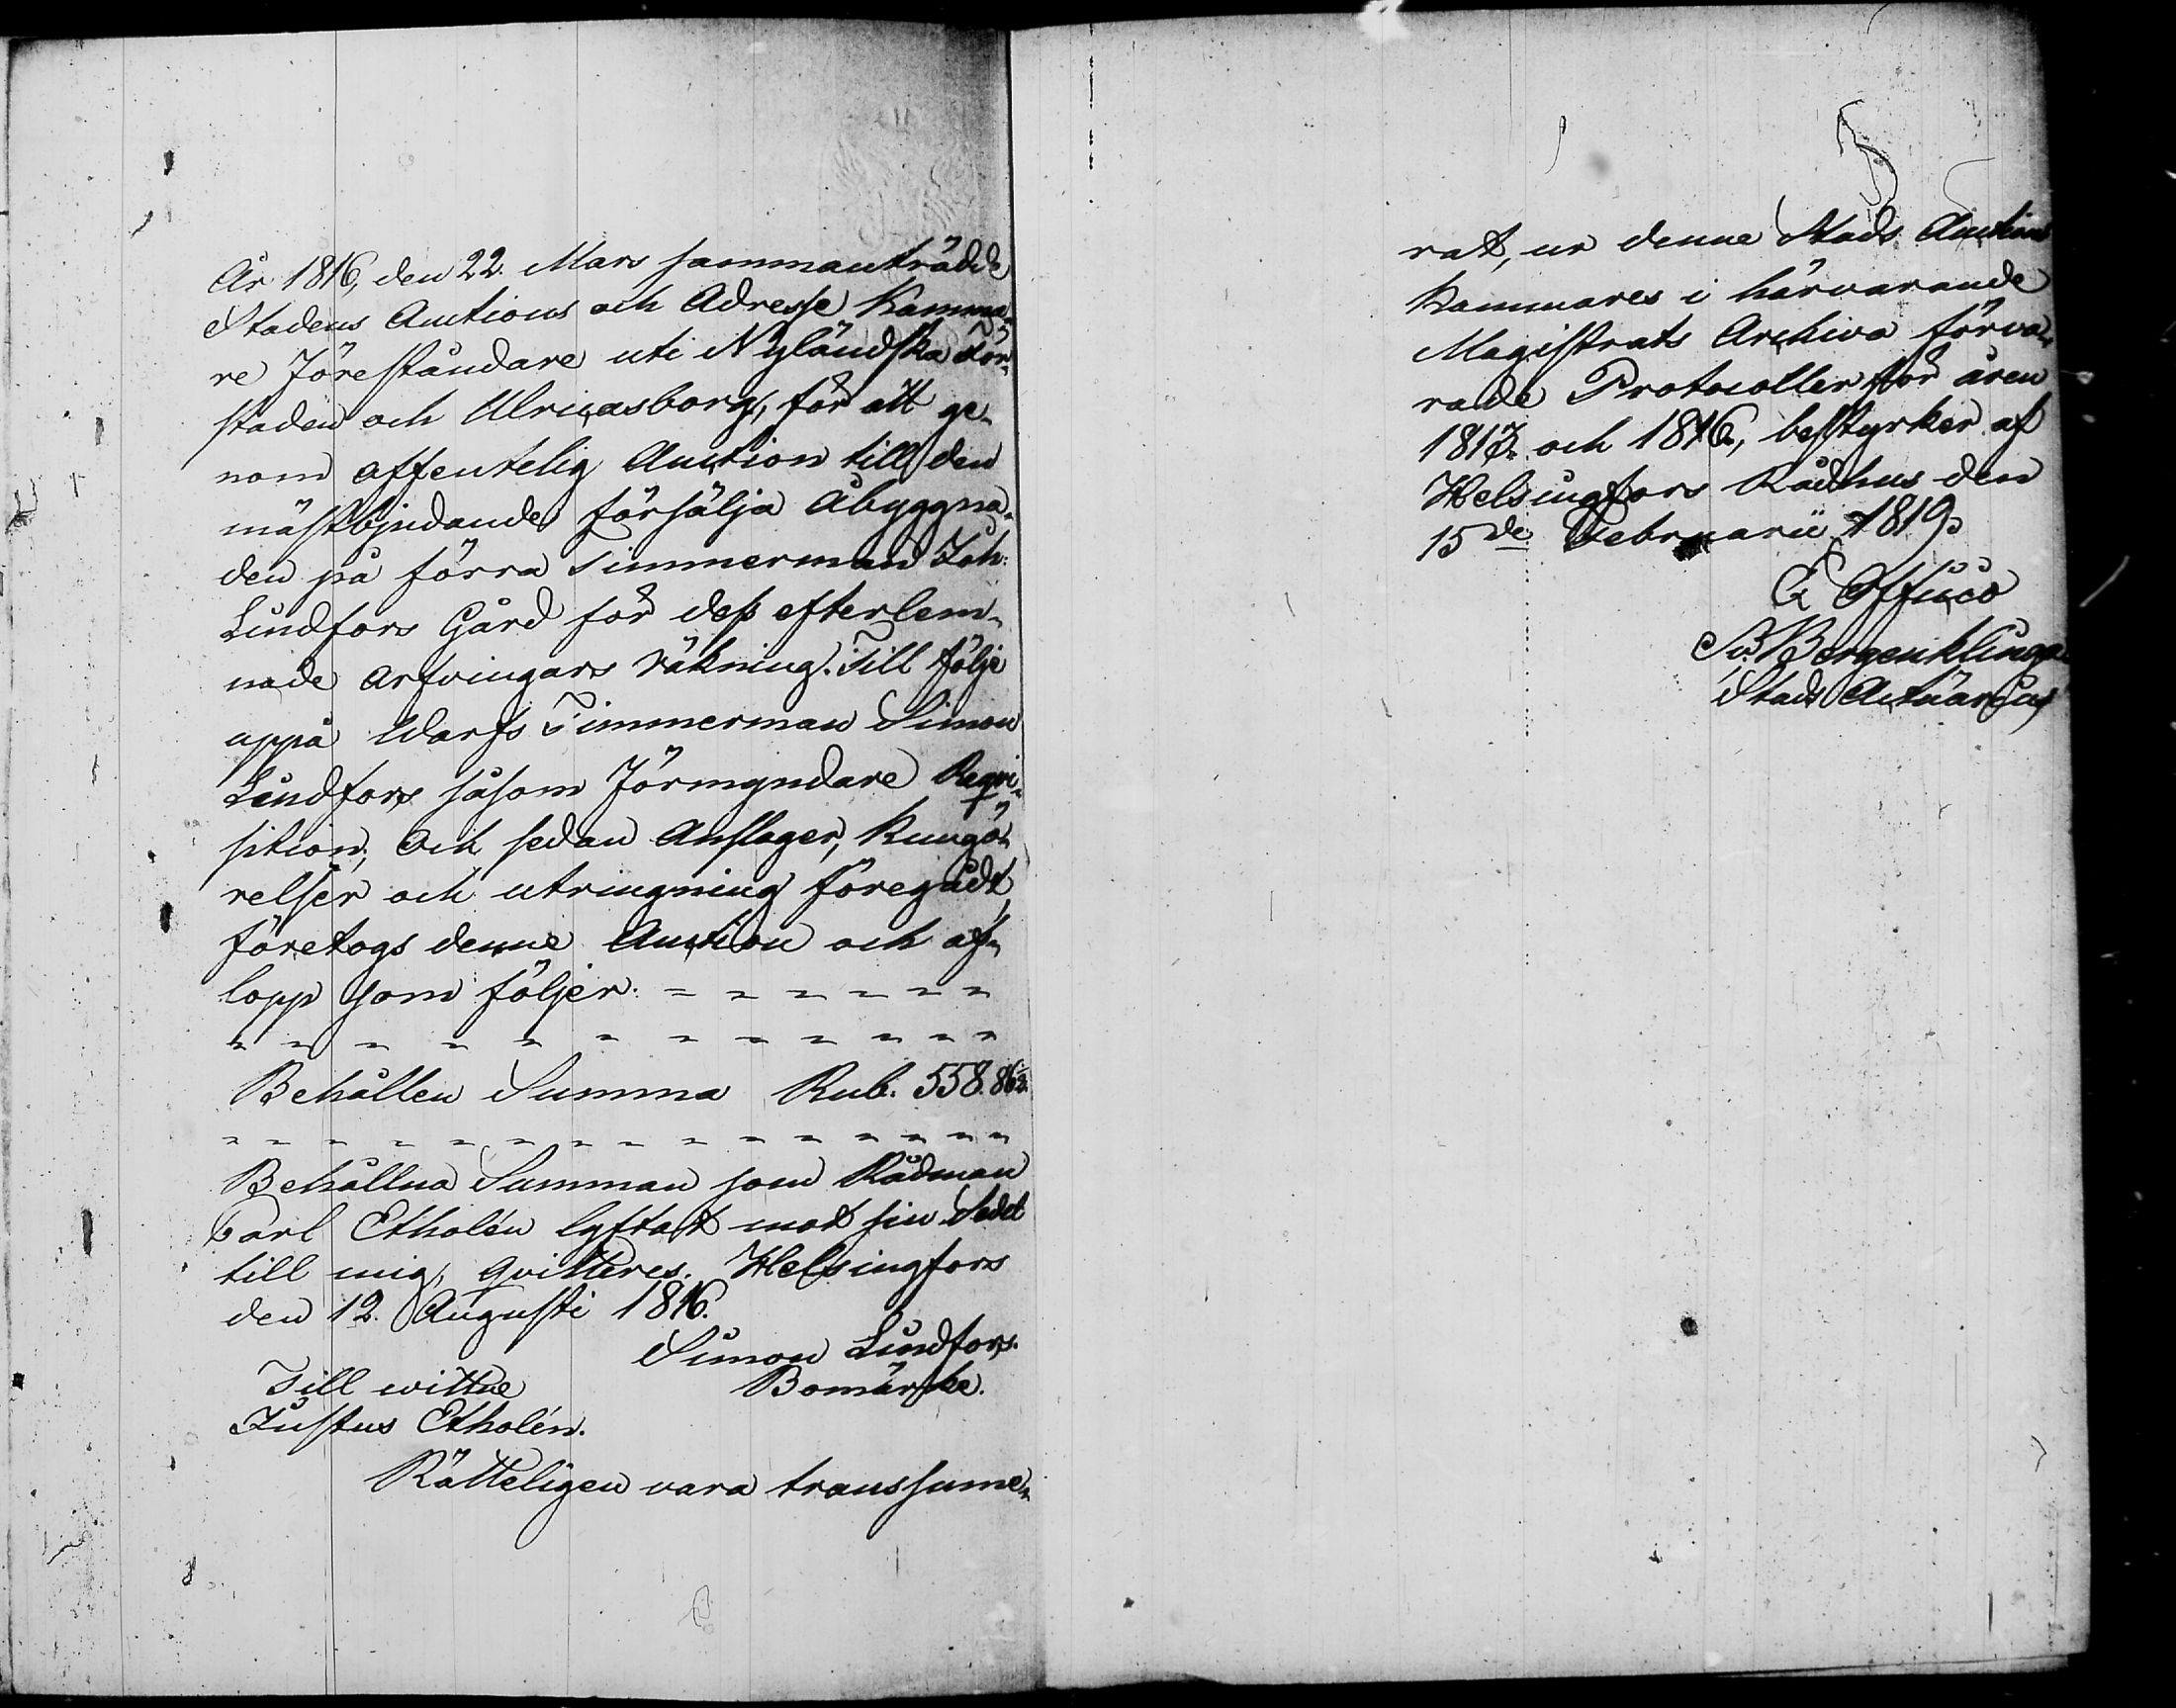 År 1816, den 22. Mars sammanträdde
Stadens Auctions och Adresse Kamma-
re Föreståndare uti Nyländska För-
staden och Ulricasborg, för att ge-
nom offentelig Auction till den
mästbjudande försälja Åbyggna-
den på förra Timmerman Joh:
Lindfors Gård för dess efterlem-
nade arfvingars räkning. Till följe
uppå Warfs Timmerman Simon
Lindfors såsom Förmyndare Reqvi-
sition; Och sedan Anslager, Kungö-
relser och utringning föregådt,
företogs denne Auction och af-
lopp som följer: - - - - - -
- - - - - - - - - - - -
Behållen Summa Rub. 558. 86½.
- - - - - - - - - - - - - -
Behållna Summan som Rådman
Carl Etholén lyftat mot sin Sedel
till mig, qvitteres. Helsingfors
den 12. Augusti 1816.
Simon Lindfors.
Till wittne Bomärke.
Justus Etholén.
Rätteligen vara transsume-
rat, ur denne Stads Auctions
Kammares i härvarande
Magistrats Archiva förva-
rade Protocoller för åren
1813 och 1816, bestyrker af
Helsingfors Rådhus den
15de Februarii 1819.
Ex Officio
Bergenklinga
Stads Actuarius